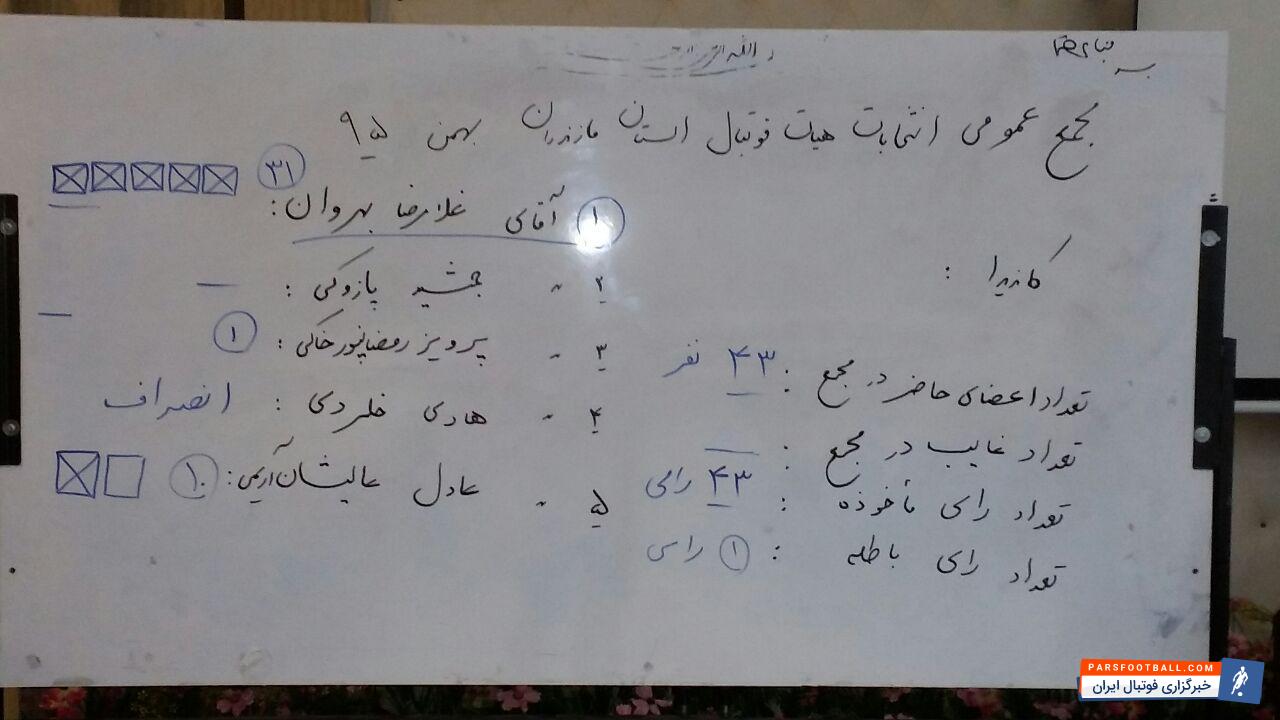 بسمه تعالی
مجمع عمومی انتخابات هیات فوتبال استان مازندران بهمن ۹۵
کاندیدا :
۱ آقای غلامرضا بهروان : ۳۱
۲ - جمشید پازوکی : —
۳ - پرویز رمضانپور خاکی : ۱
۴ - هادی خلردی : انصراف
۵ - عادل عالیشان آریمی : ۱۰
تعداد اعضای حاضر در مجمع : ۴۳ نفر
تعداد غایب در مجمع : —
تعداد رای مأخوذه : ۴۳ رای
تعداد رای باطله : ۱ رای
PARSFOOTBALL.COM
خبرگزاری فوتبال ایران